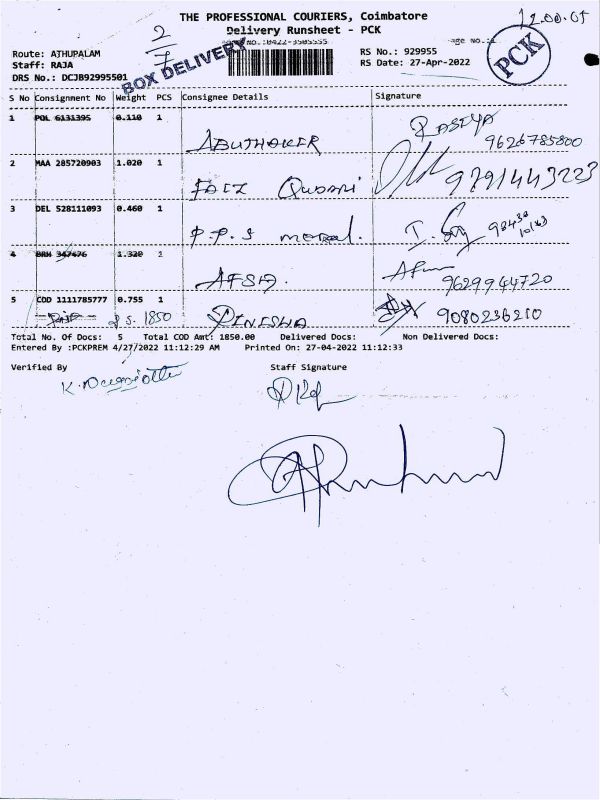 THE PROFESSIONAL COURIERS, Coimbatore
Delivery Runsheet - PCK
12.00.05
2/7
BOX DELIVERY
PCK
Route: ATHUPALAM
Staff: RAJA
DRS No.: DCJB92995501
RS No.: 929955
RS Date: 27-Apr-2022
S No Consignment No Weight PCS Consignee Details Signature
1 POL 6131395 0.110 1 ABUTHAKER RASIYA 9626785800
2 MAA 285720903 1.020 1 FAIZ Quosni 9791443223
3 DEL 528111093 0.460 1 P.P.S metal.
4 BRM 347476 1.320 1 AFSA. 9629944720
5 COD 1111785777 0.755 1 DINESHA 9080236210
1850
Total No. Of Docs: 5 Total COD Amt: 1850.00 Delivered Docs: Non Delivered Docs:
Entered By :PCKPREM 4/27/2022 11:12:29 AM Printed On: 27-04-2022 11:12:33
Verified By Staff Signature